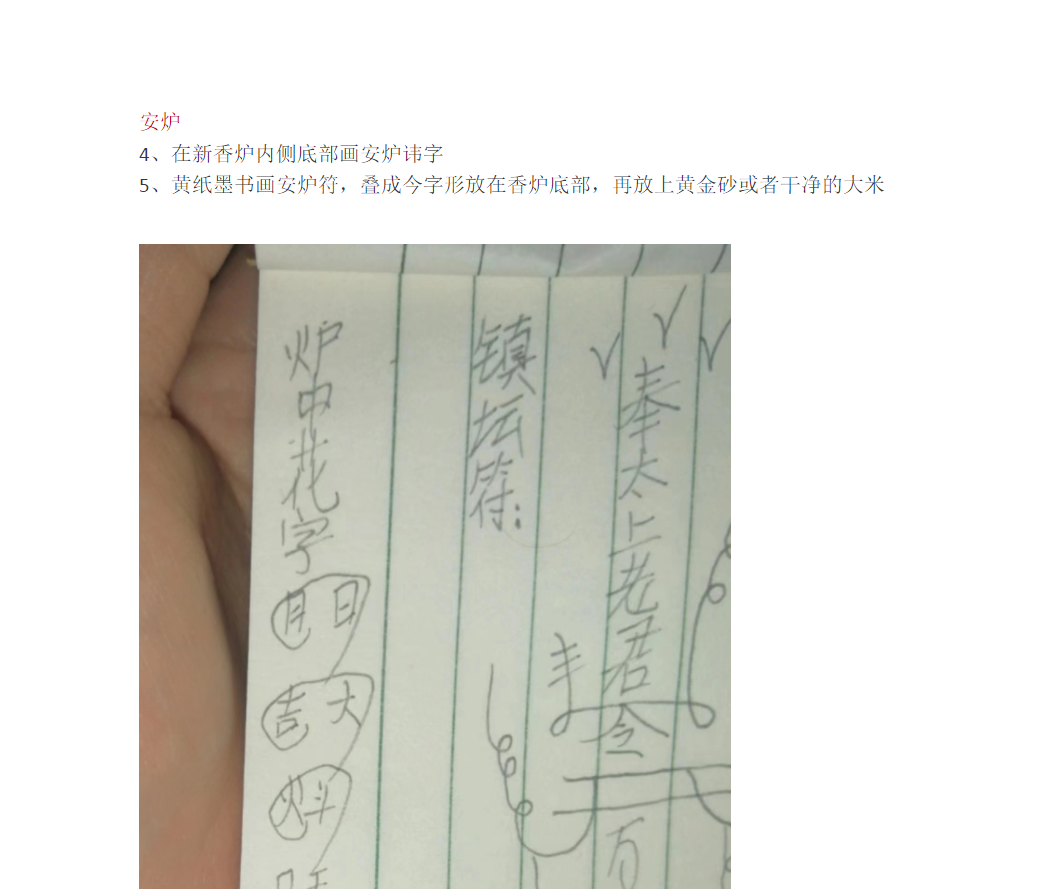 安炉
4、在新香炉内侧底部画安炉讳字
5、黄纸墨书画安炉符，叠成今字形放在香炉底部，再放上黄金砂或者干净的大米
奉太上老君令
镇坛符：
炉中花字
日月
大吉